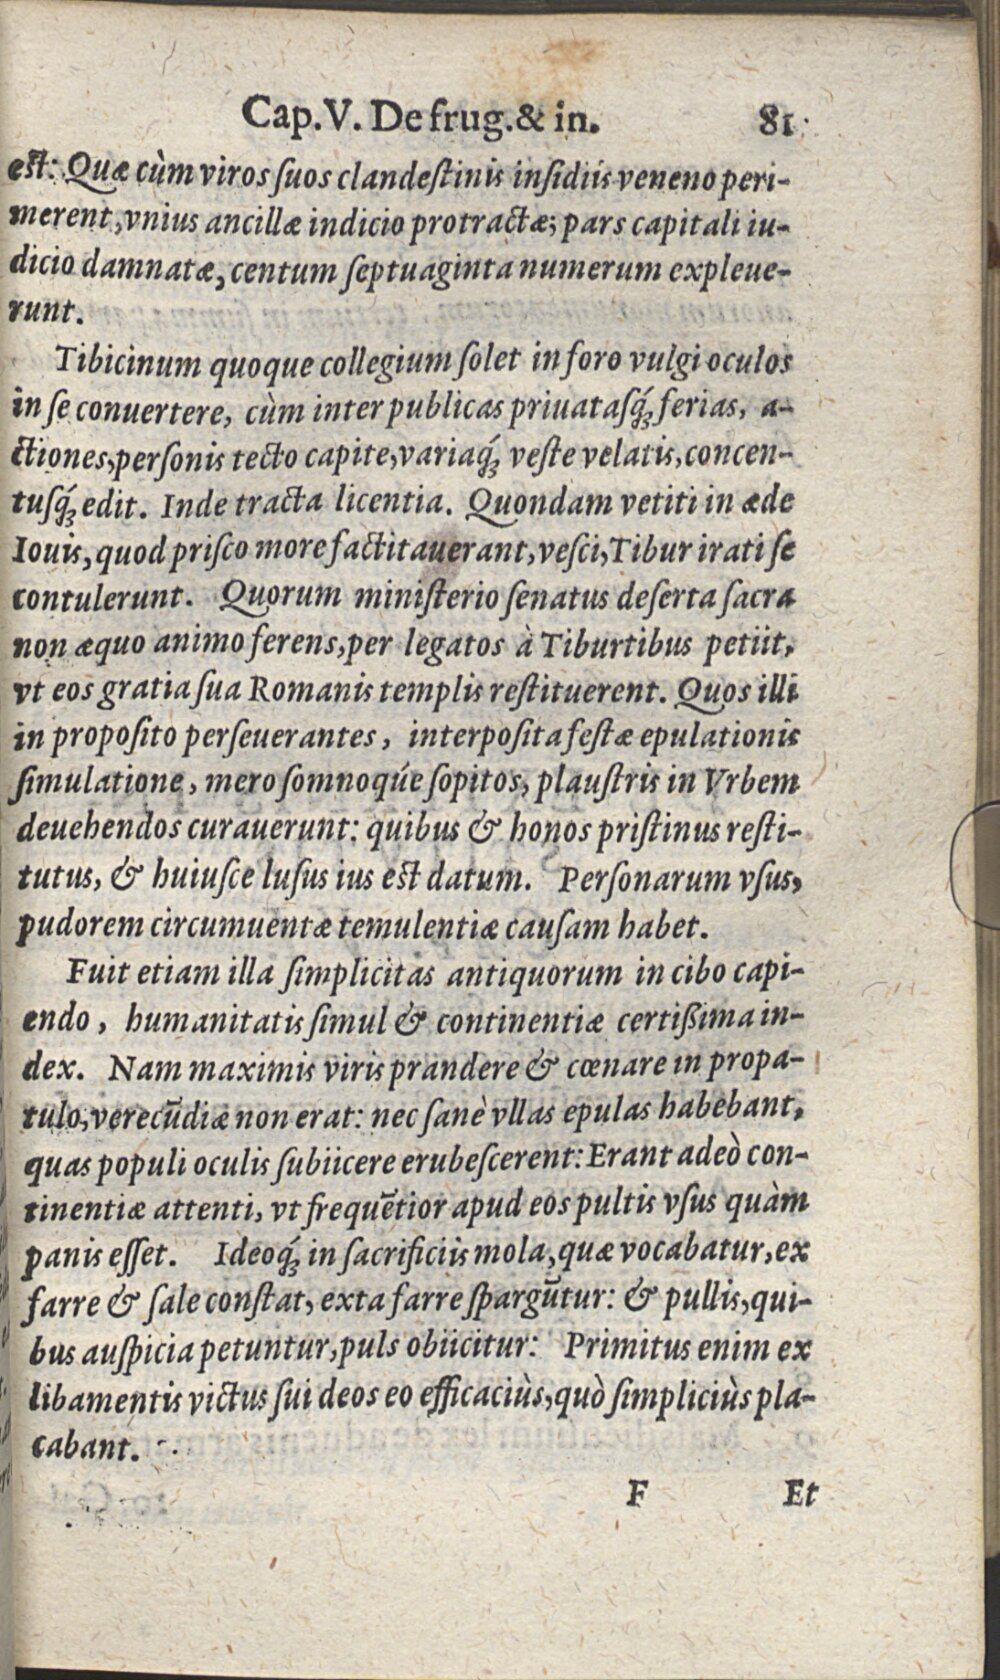 Cap.V. De frug.& in. 81
est: Quæ cùm viros ſuos clandeſtinis inſidiis veneno peri-
merent, vnius ancillæ indicio protractæ; pars capitali iu-
dicio damnatæ, centum ſeptuaginta numerum expleue-
runt.
Tibicinum quoque collegium ſolet in foro vulgi oculos
in ſe conuertere, cùm inter publicas priuataſq́; ferias, a-
ctiones, perſonis tecto capite, variaq́; veſte velatis, concen-
tuſq́; edit. Inde tracta licentia. Quondam vetiti in æde
Iouis, quod priſco more factitauerant, veſci, Tibur irati ſe
contulerunt. Quorum miniſterio ſenatus deſerta ſacra
non æquo animo ferens, per legatos à Tiburtibus petiit,
vt eos gratia ſua Romanis templis reſtituerent. Quos illi
in propoſito perſeuerantes, interpoſita feſtæ epulationis
ſimulatione, mero ſomnoqúe ſopitos, plauſtris in Vrbem
deuehendos curauerunt: quibus & honos priſtinus reſti-
tutus, & huiuſce luſus ius eſt datum. Perſonarum vſus,
pudorem circumuentæ temulentiæ cauſam habet.
Fuit etiam illa ſimplicitas antiquorum in cibo capi-
endo, humanitatis ſimul & continentiæ certißima in-
dex. Nam maximis viris prandere & cœnare in propa-
tulo, verecūdiæ non erat: nec ſanè vllas epulas habebant,
quas populi oculis ſubiicere erubeſcerent: Erant adeò con-
tinentiæ attenti, vt frequētior apud eos pultis vſus quàm
panis eſſet. Ideoq́; in ſacrificiis mola, quæ vocabatur, ex
farre & ſale conſtat, exta farre ſpargūtur: & pullis, qui-
bus auſpicia petuntur, puls obiicitur: Primitus enim ex
libamentis victus ſui deos eo efficaciùs, quò ſimpliciùs pla-
cabant.
F Et